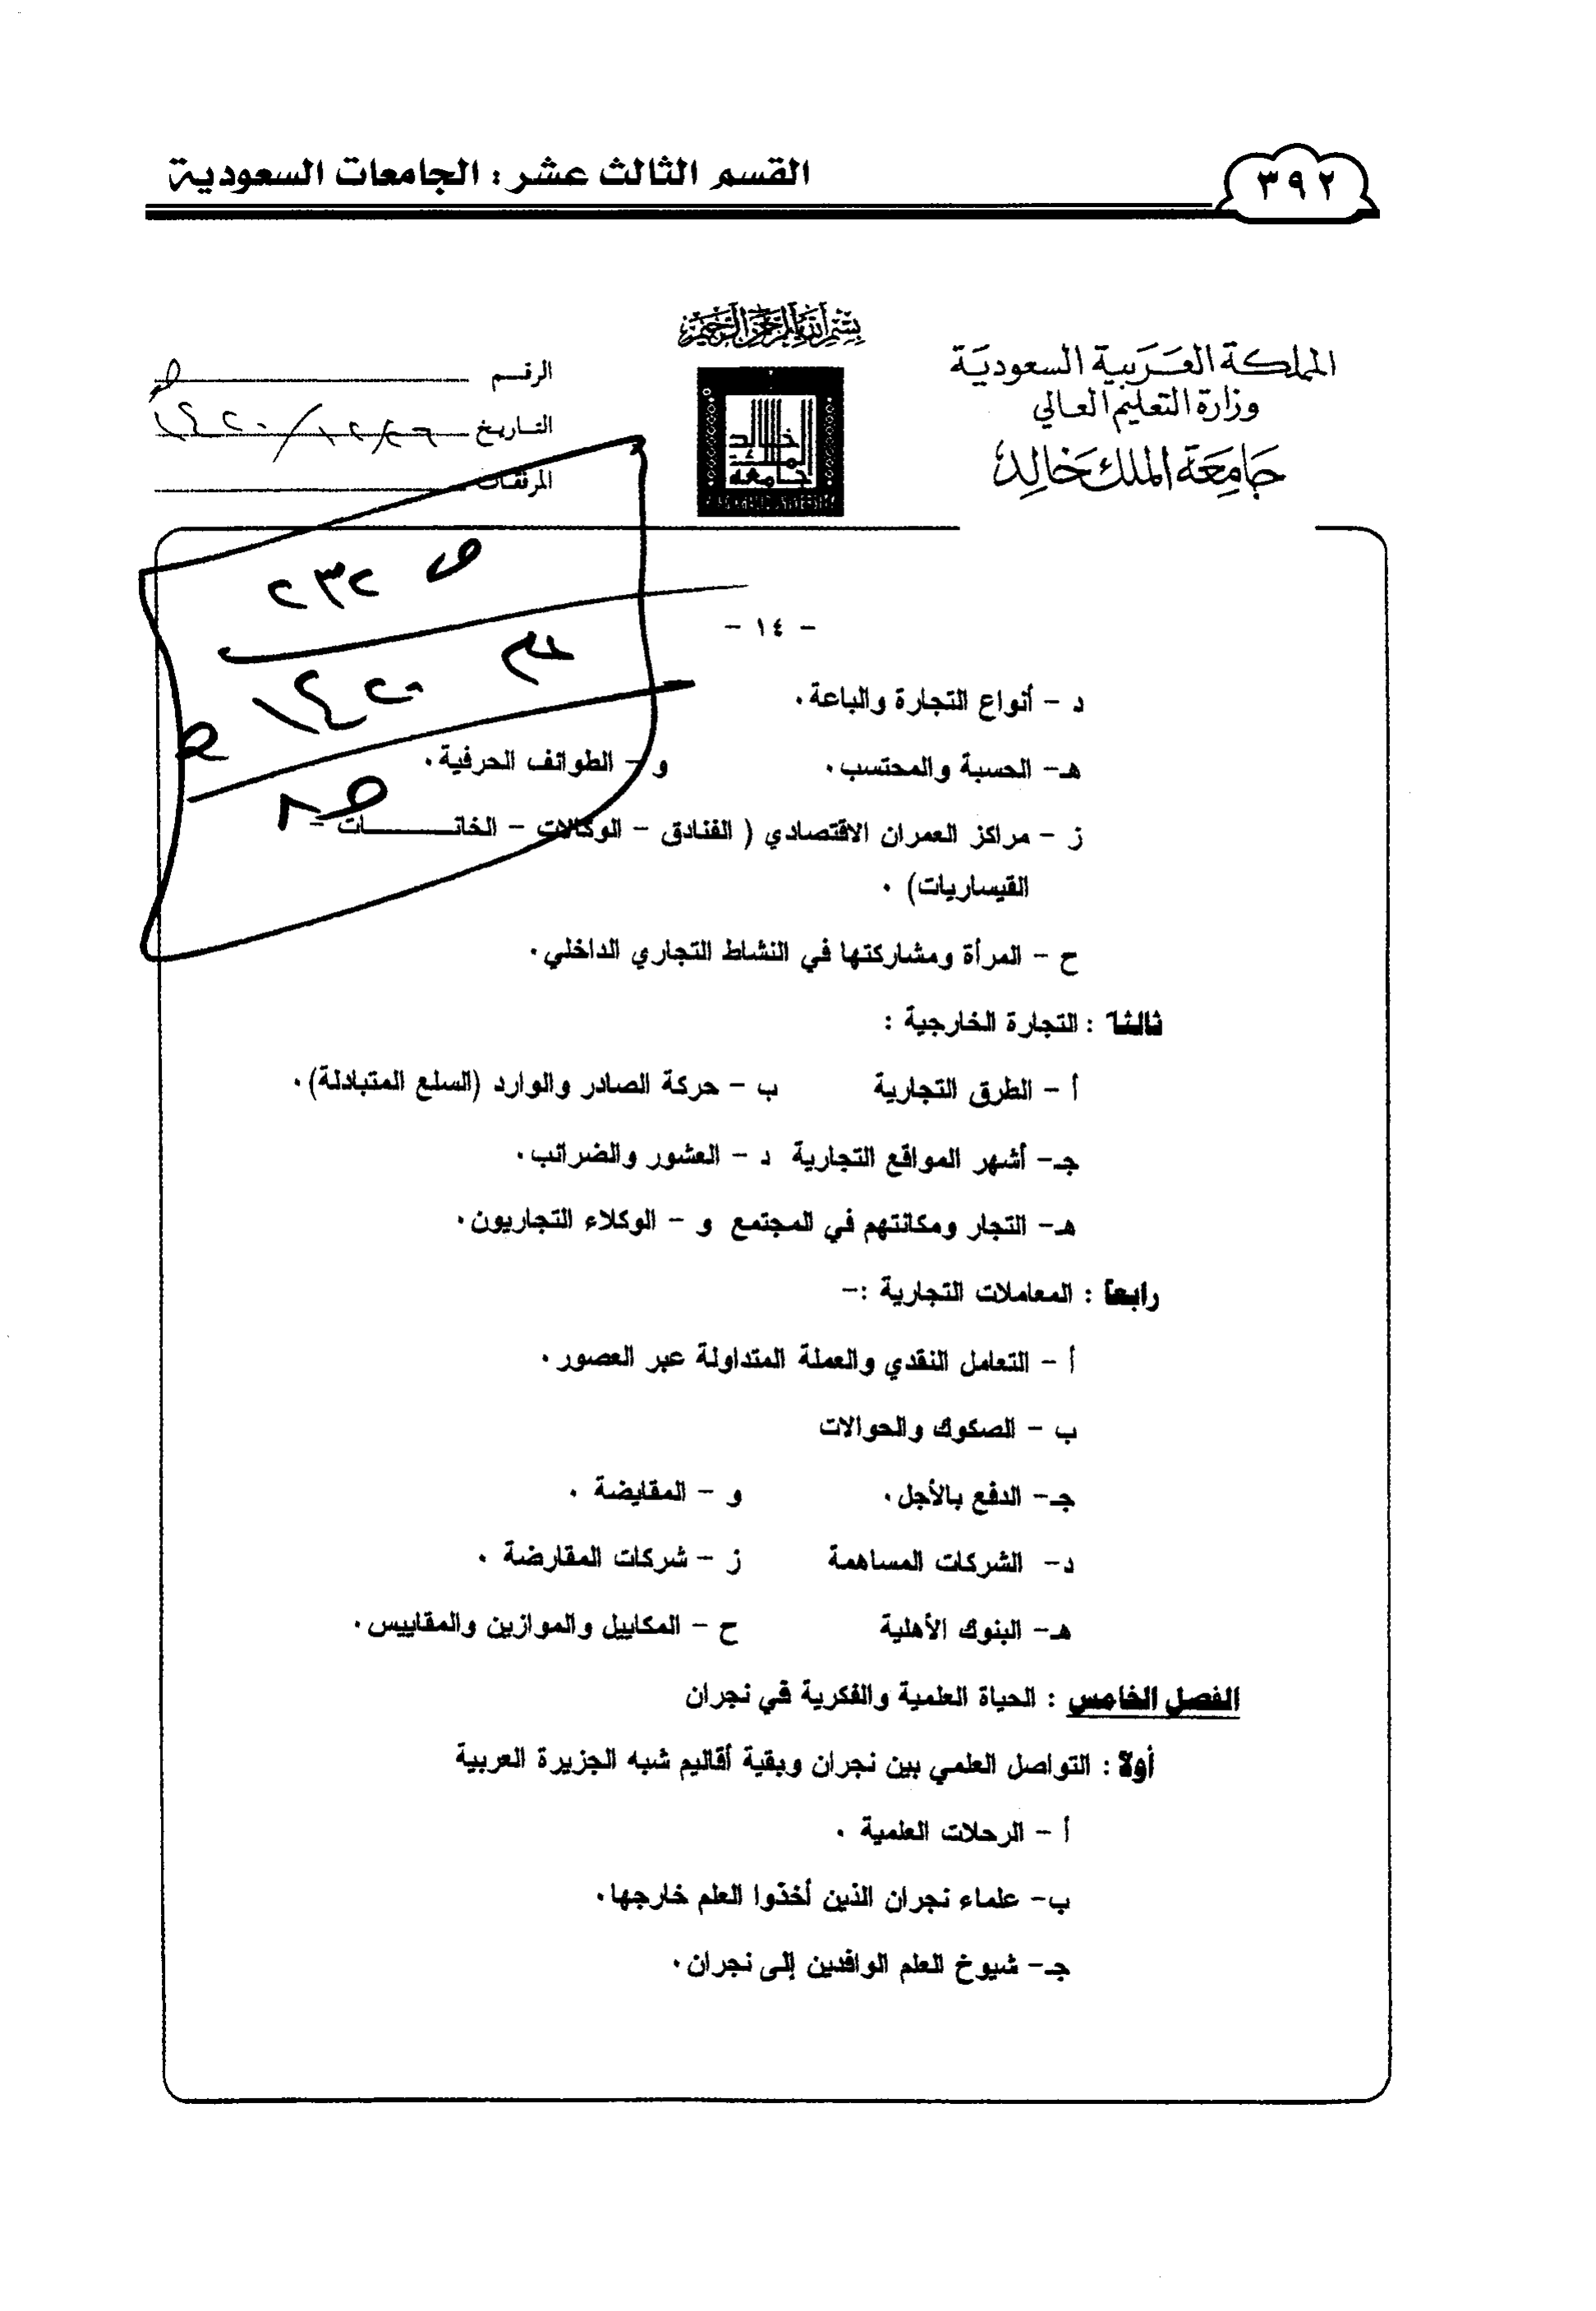 ٣٩٢
القسم الثالث عشر: الجامعات السعودية
بسم الله الرحمن الرحيم
المملكة العربية السعودية
وزارة التعليم العالي
جامعة الملك خالد
جامعة الملك خالد
الرقم
التاريخ ٢٦/١٢/١٤٢٠هـ
المرفقات
ص ٢٣٢
١٤٢٠
هـ
ص ٨
- ١٤ -
د - أنواع التجارة والباعة.
هـ- الحسبة والمحتسب. و - الطوائف الحرفية.
ز - مراكز العمران الاقتصادي ( الفنادق - الوكالات - الخانـــــات -
القيساريات) .
ح - المرأة ومشاركتها في النشاط التجاري الداخلي.
ثالثا : التجارة الخارجية :
أ - الطرق التجارية ب - حركة الصادر والوارد (السلع المتبادلة).
جـ- أشهر المواقع التجارية د - العشور والضرائب.
هـ- التجار ومكانتهم في المجتمع و - الوكلاء التجاريون.
رابعا : المعاملات التجارية :-
أ - التعامل النقدي والعملة المتداولة عبر العصور.
ب - الصكوك والحوالات
جـ- الدفع بالأجل. و - المقايضة .
د- الشركات المساهمة ز - شركات المقارضة .
هـ- البنوك الأهلية ح - المكاييل والموازين والمقاييس.
الفصل الخامس : الحياة العلمية والفكرية في نجران
أولا : التواصل العلمي بين نجران وبقية أقاليم شبه الجزيرة العربية
أ - الرحلات العلمية .
ب- علماء نجران الذين أخذوا العلم خارجها.
جـ- شيوخ العلم الوافدين إلى نجران.